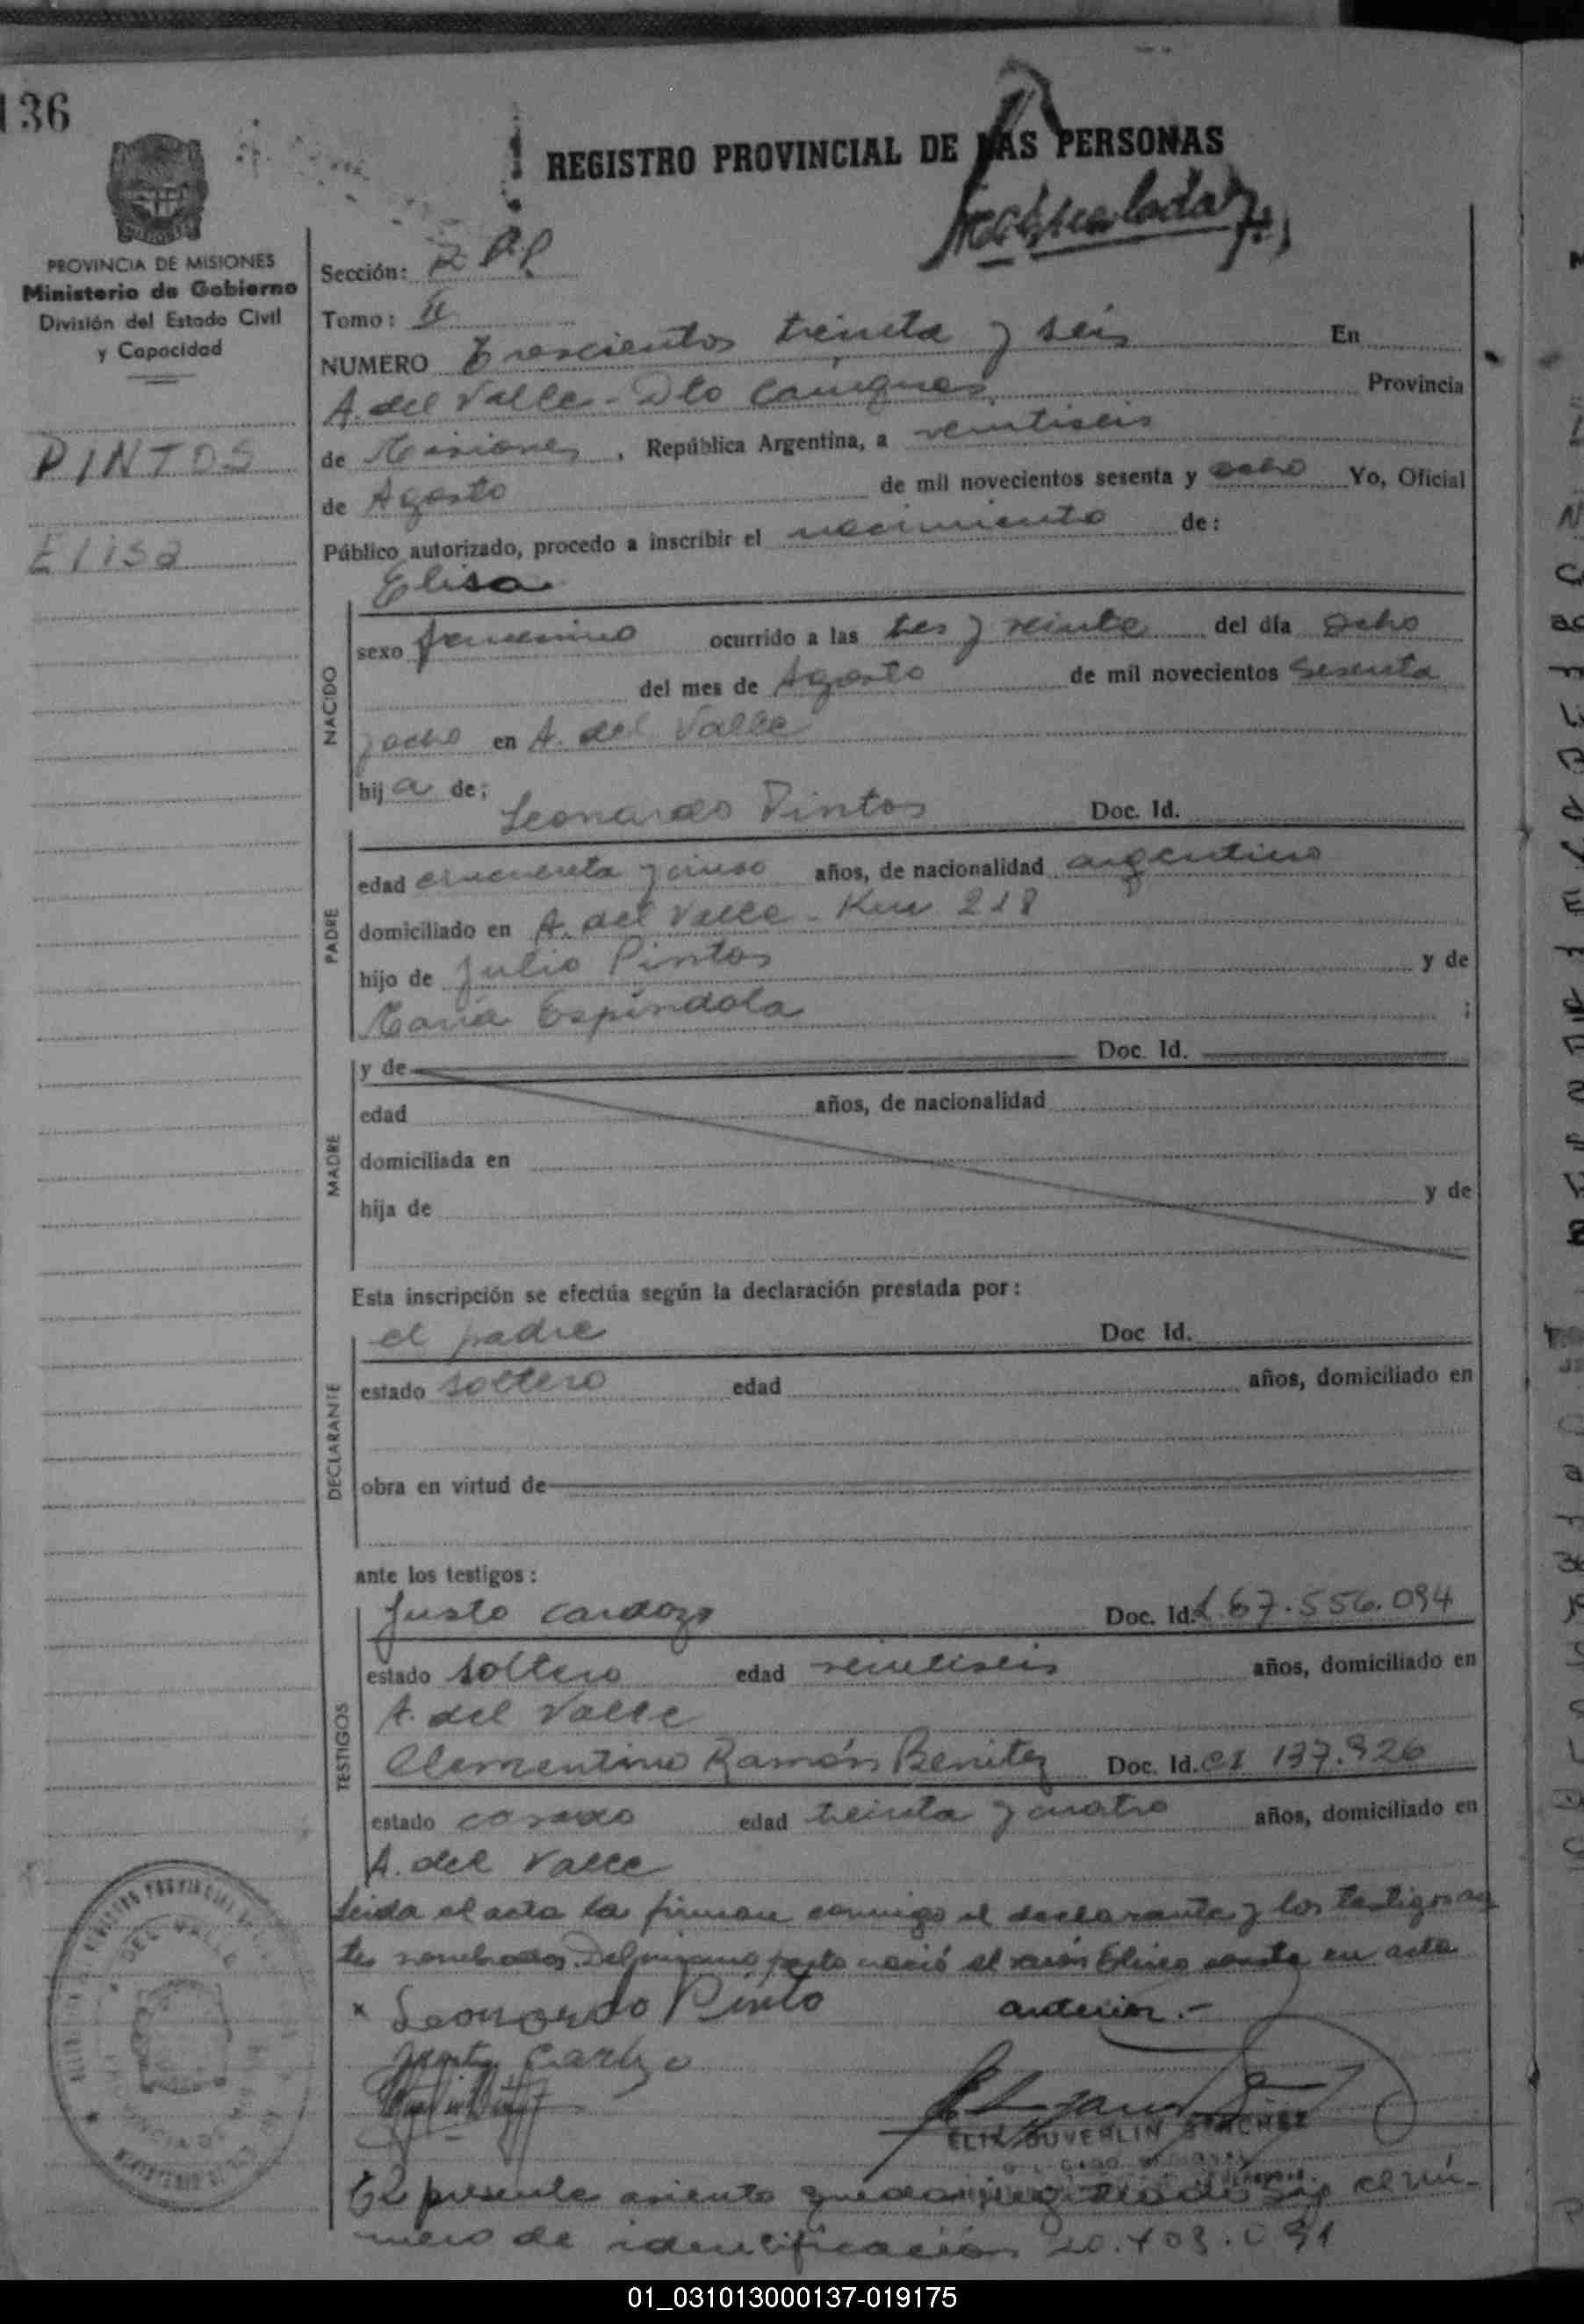 136
REGISTRO PROVINCIAL DE LAS PERSONAS
PROVINCIA DE MISIONES
Ministerio de Gobierno
División del Estado Civil
y Capacidad
PINTOS
Elisa
Sección:
Tomo: II
NUMERO Trescientos treinta y seis En
A. del Valle - Dto Cainguas Provincia
de Misiones, República Argentina, a veintiseis
de Agosto de mil novecientos sesenta y ocho Yo, Oficial
Público autorizado, procedo a inscribir el nacimiento de:
Elisa
NACIDO
sexo femenino ocurrido a las tres y veinte del día ocho
del mes de Agosto de mil novecientos sesenta
y ocho en A. del Valle
hija de:
Leonardo Pintos Doc. Id.
PADRE
edad cincuenta y cinco años, de nacionalidad argentino
domiciliado en A. del Valle - Km 218
hijo de Julio Pintos y de
María Espíndola ;
MADRE
y de Doc. Id.
edad años, de nacionalidad
domiciliada en
hija de y de
Esta inscripción se efectúa según la declaración prestada por:
DECLARANTE
el padre Doc Id.
estado soltero edad años, domiciliado en
obra en virtud de
ante los testigos:
TESTIGOS
Justo Cardozo Doc. Id. 67.556.094
estado soltero edad veintiseis años, domiciliado en
A. del Valle
Clementino Ramón Benitez Doc. Id. CI 137.926
estado casado edad treinta y cuatro años, domiciliado en
A. del Valle
Leida el acta la firman conmigo el declarante y los testigos an
tes nombrados. Del mismo parto nació el varón Eliseo consta en acta
x Leonardo Pinto anterior.-
SANCHEZ
El presente asiento queda registrado bajo el nú-
mero de identificación
01_031013000137-019175